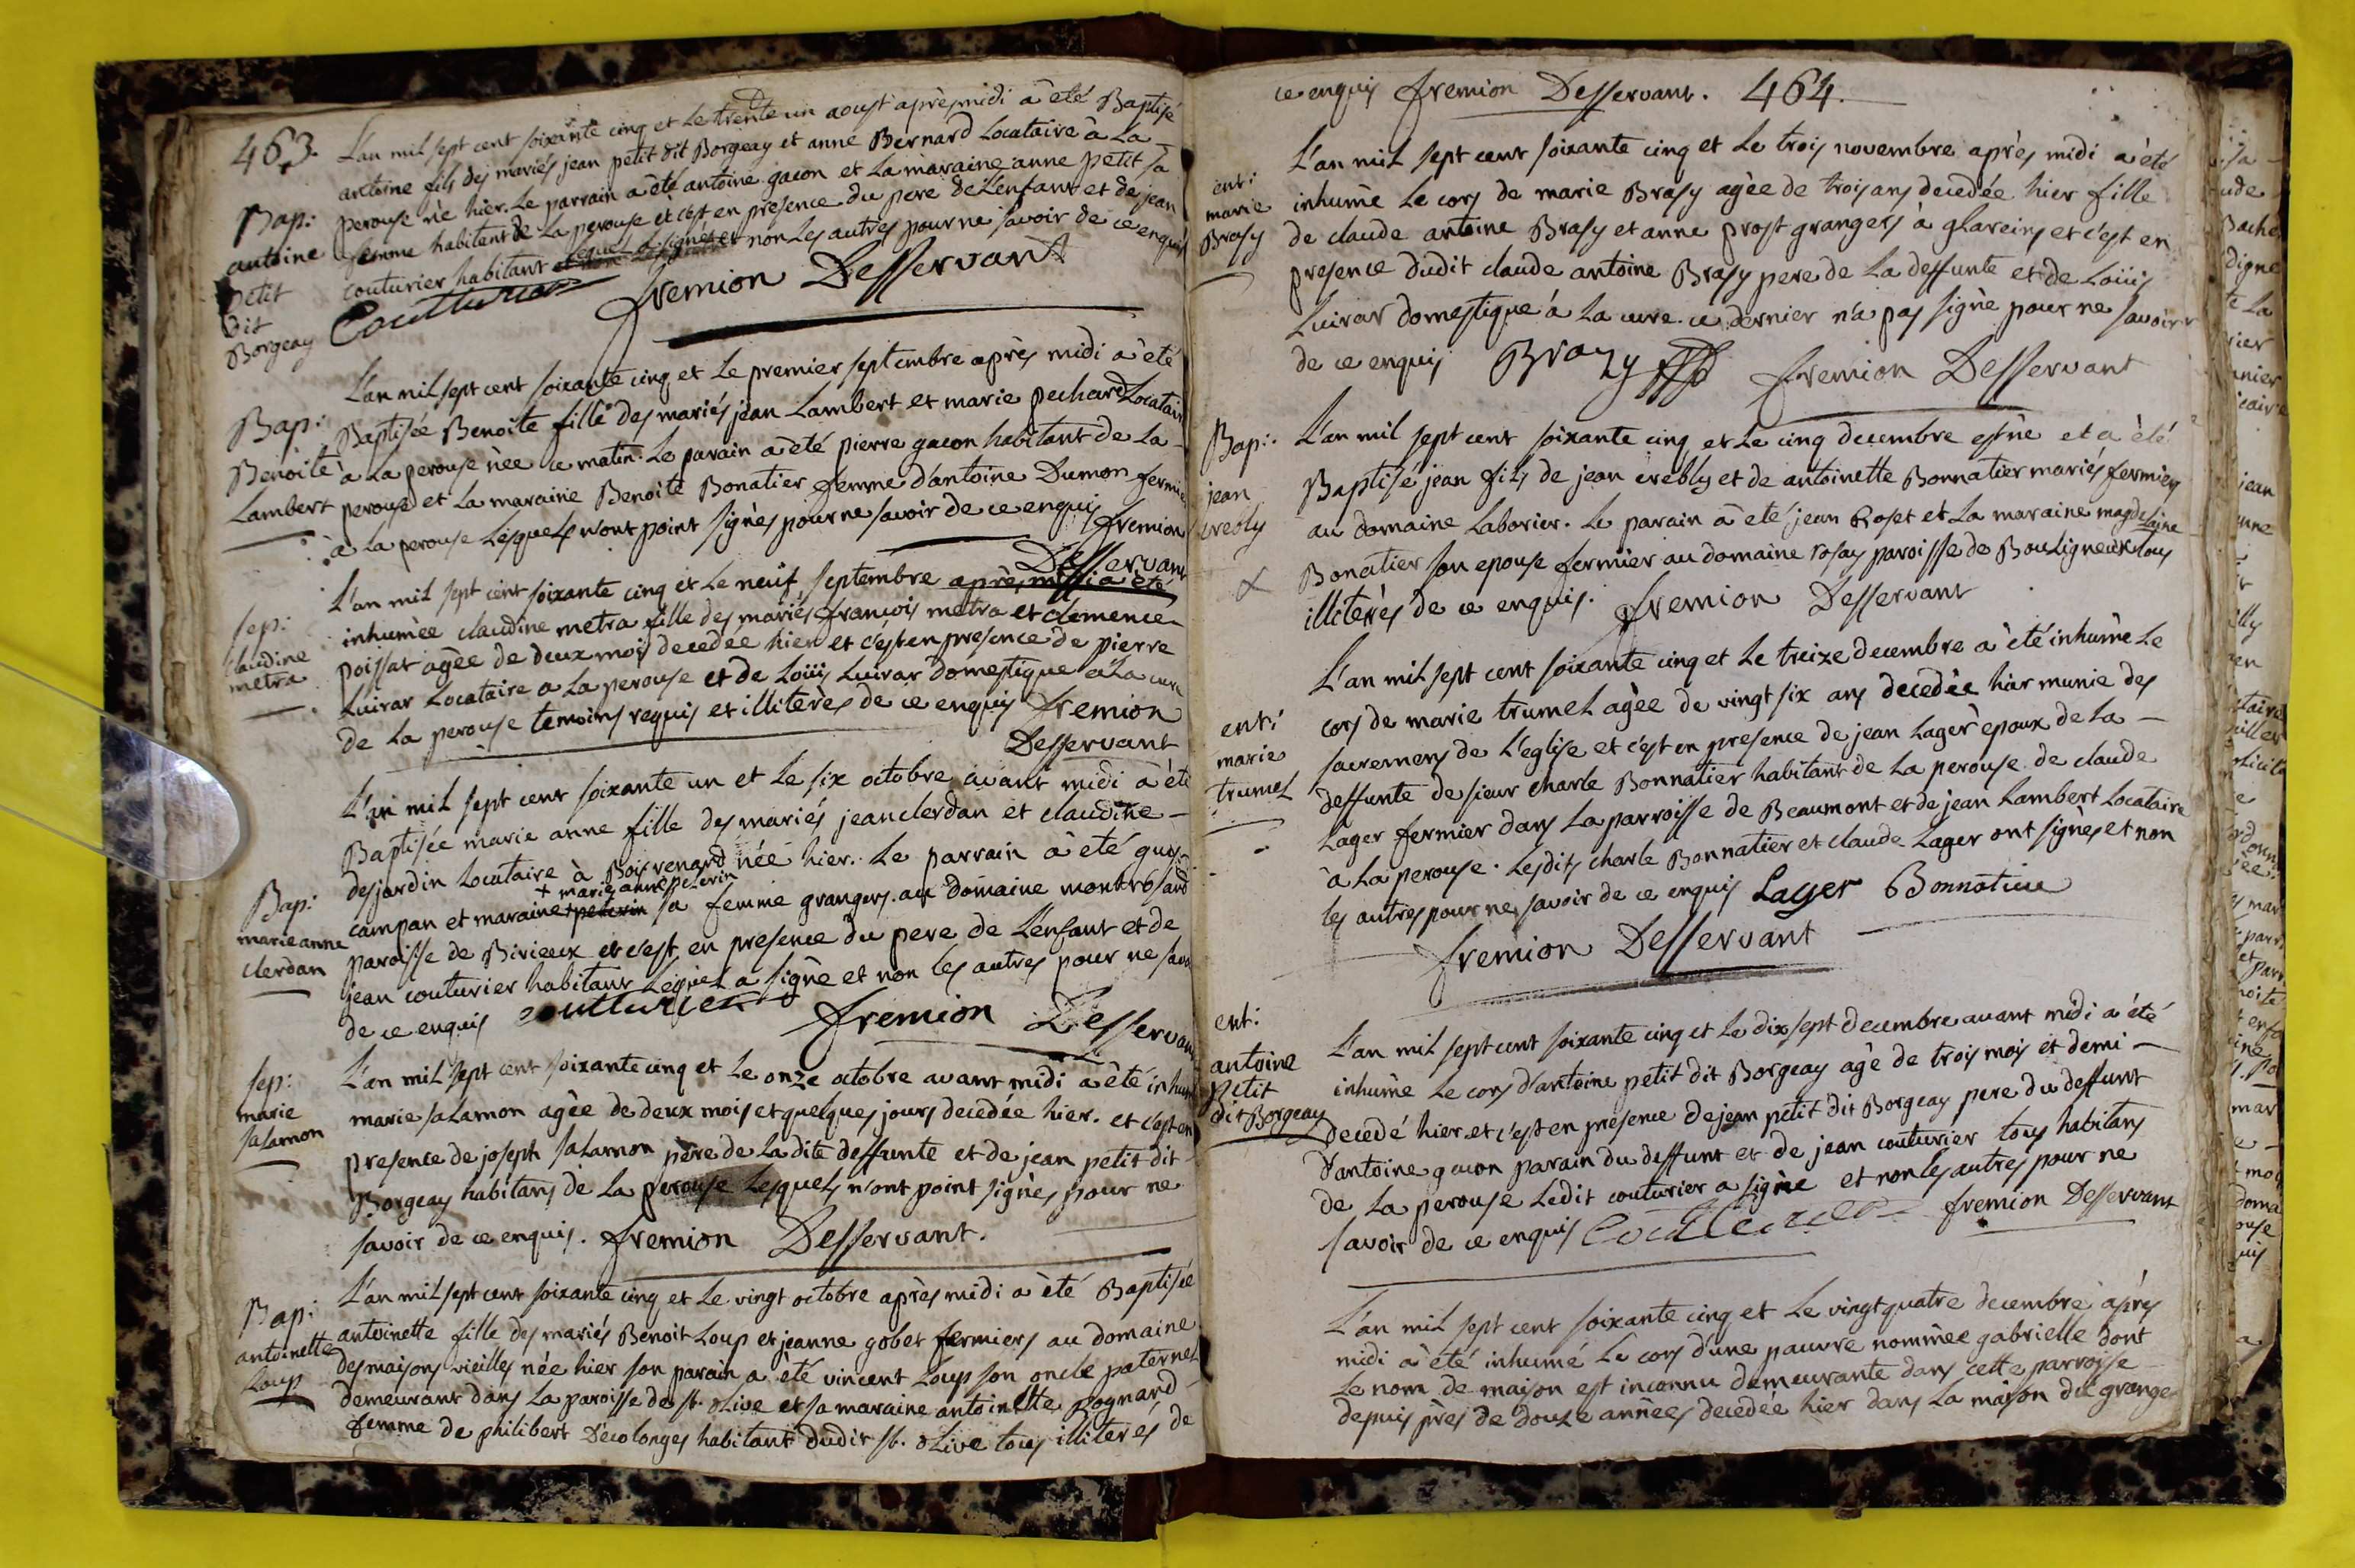 463.
L'an mil sept cent soixante cinq et le trente un aoust après midi a été Baptisé
antoine fils des mariés jean petit dit Borgeay et anne Bernard Locataire à La
perouse né hier. Le parrain a été antoine gacon et La maraine anne petit sa
femme habitent de La perouse et c'est en presence du pere de L'enfant et de jean
couturier habitant lequel a signé et non Les autres pour ne savoir de ce enquis
Bap:
antoine
petit
dit
Borgeay
Coutturier fremion Desservant
L'an mil sept cent soixante cinq et Le premier septembre après midi a été
Baptisée Benoite fille des mariés jean Lambert et marie pechard Locatair
à La perouse née ce matin. Le parain a été pierre gacon habitant de La
perouse et La maraine Benoite Bonatier femme d'antoine Dumon fermie
à La perouse Lesquels n'ont point signés pour ne savoir de ce enquis fremion
Desservant
Bap:
Benoite
Lambert
L'an mil sept cent soixante cinq et Le neuf septembre après midi a été
inhumée claudine metra fille des mariés francois metra et clemence
poissat agée de deux mois decedée hier et c'est en presence de pierre
Luirar Locataire a La perouse et de Loüis Luirar domestique à La cure
de La perouse temoins requis et illiterès de ce enquis fremion
Desservant
sep:
claudine
metra
L'an mil sept cent soixante un et Le six octobre avant midi a été
Baptisée marie anne fille des mariés jean clerdan et claudine
desjardin Locataire à Bois renard née hier. Le parrain a été guy
+ marie anne pelerin
campan et maraine + pelerin sa femme grangers au Domaine montrosard
paroisse de Birieux et c'est en presence du pere de L'enfant et de
jean couturier habitant Lequel a signé et non les autres pour ne savo
de ce enquis coutturier fremion Desservant
Bap:
marie anne
clerdan
L'an mil sept cent soixante cinq et Le onze octobre avant midi a été inhum
marie salamon agée de deux mois et quelques jours decedée hier. et c'est en
presence de joseph salamon père de La dite deffunte et de jean petit dit
Borgeay habitans de La perouse Lesquels n'ont point signès pour ne
savoir de ce enquis. fremion Desservant.
sep:
marie
salamon
L'an mil sept cent soixante cinq et Le vingt octobre après midi a été Baptisée
antoinette fille des mariés Benoit Loup et jeanne gobet fermiers au domaine
des maisons vieilles née hier son parain a été vincent Loup son oncle paternel
demeurant dans La paroisse de st. olive et sa maraine antoinette pognard
femme de philibert Décolonges habitant dudit st. olive tous illiterés de
Bap:
antoinette
Loup
ce enquis fremion Desservant. 464.
L'an mil sept cent soixante cinq et Le trois novembre après midi a été
inhumé Le cors de marie Brasy agèe de trois ans decedée hier fille
de claude antoine Brasy et anne prost grangers à glareins et c'est en
presence dudit claude antoine Brasy pere de La deffunte et de Loüis
Luirar domestique à La cure. ce dernier n'a pas signè pour ne savoir
de ce enquis Brazy fremion Desservant
ent:
marie
Brasy
L'an mil sept cent soixante cinq et Le cinq decembre est nè et a été
Baptisé jean fils de jean crebly et de antoinette Bonnatier mariés fermiers
au domaine Laborier. Le parain a été jean Roset et La maraine magdelaine
Bonatier son epouse fermier au domaine rosay paroisse de Bouligneux tous
illiterès de ce enquis. fremion Desservant
Bap:
jean
crebly
L'an mil sept cent soixante cinq et Le treize decembre a été inhumè Le
cors de marie trumel agèe de vingt six ans decedée hiar munie des
sacremens de L'eglise et c'est en presence de jean Lager èpoux de La
deffunte de sieur charle Bonnatier habitant de La perouse de claude
Lager fermier dans La parroisse de Beaumont et de jean Lambert Locataire
à La perouse. Lesdits charle Bonnatier et claude Lager ont signès et non
les autres pour ne savoir de ce enquis Lager Bonnatiue
fremion Desservant
ent:
marie
trumel
L'an mil sept cent soixante cinq et Le dix sept decembre avant midi a été
inhumè Le cors d'antoine petit dit Borgeay agè de trois mois et demi
decedé hier. et c'est en presence de jean petit dit Borgeay pere du deffunt
d'antoine gacon parain du deffunt et de jean couturier tous habitans
de La perouse Ledit couturier a signe et non les autres pour ne
savoir de ce enquis Coutturier fremion Desservant
ent:
antoine
petit
dit Borgeay
L'an mil sept cent soixante cinq et Le vingt quatre decembre après
midi a été inhumé Le cors d'une pauvre nommèe gabrielle dont
Le nom de maison est inconnu demeurante dans cette parroisse
depuis près de douze annèes decedèe hier dans La maison du grange